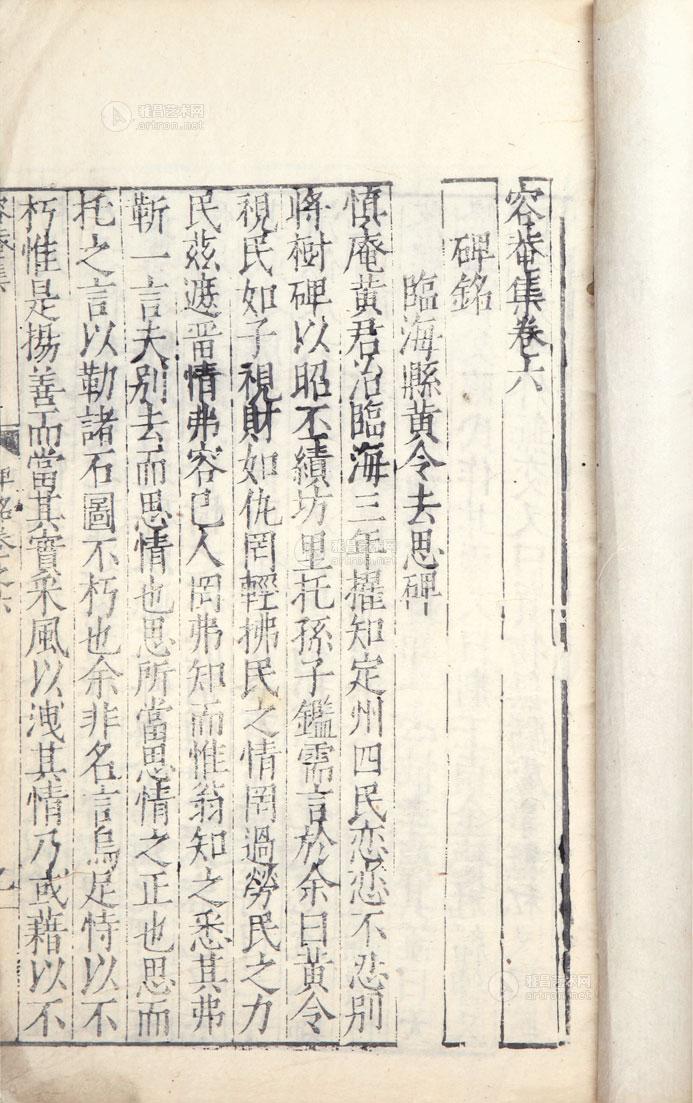 容菴集卷六
碑銘
臨海縣黃令去思碑
慎庵黃君治臨海三年擢知定州四民恋恋不忍别
將樹碑以昭丕績坊里托孫子鑑需言於余曰黃令
視民如子視財如仇罔輕拂民之情罔過勞民之力
民茲遮畱情弗容已人罔弗知而惟翁知之悉其弗
靳一言夫别去而思情也思所當思情之正也思而
托之言以勒諸石圖不朽也余非名言烏足恃以不
朽惟是揚善而當其實采風以洩其情乃或藉以不
碑銘卷之六
雅昌艺术网
artron.net
雅昌艺术网
artron.net
雅昌艺术网
artron.net